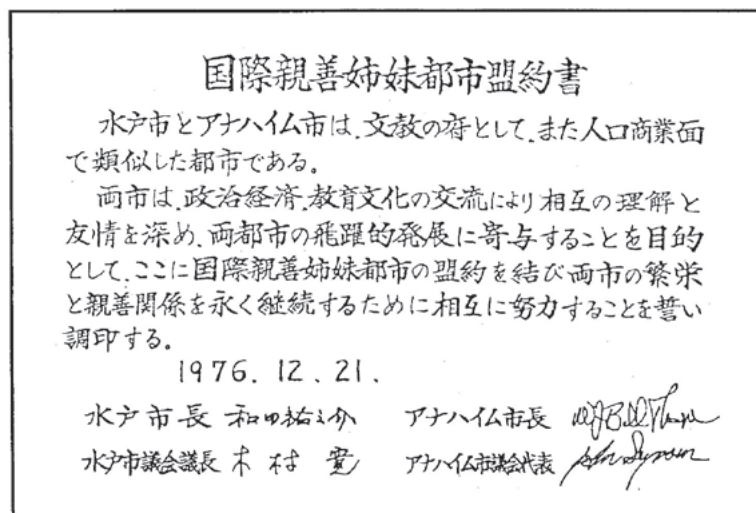 国際親善姉妹都市盟約書
水戸市とアナハイム市は、文教の府として、また人口商業面
で類似した都市である。
両市は、政治経済、教育文化の交流により相互の理解と
友情を深め、両都市の飛躍的発展に寄与することを目的
として、ここに国際親善姉妹都市の盟約を結び両市の繁栄
と親善関係を永く継続するために相互に努力することを誓い
調印する。
1976.12.21.
水戸市長 和田祐之介 アナハイム市長
水戸市議会議長 木村 寛 アナハイム市議会代表